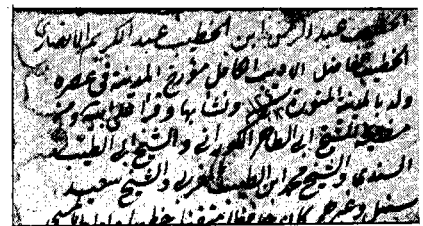 الخطيب عبد الرحمن ابن الخطيب عبد الكريم الانصاري
الخطيب الفاضل الاديب الكامل مؤرخ المدينة في عصره
ولد بالمدينة المنورة ونشأ بها وقرأ على ابيه
الشيخ ابي الطاهر الكوراني والشيخ ابي الطيب
السندي والشيخ محمد ابن الطيب المغربي والشيخ سعيد
سنبل وغيرهم